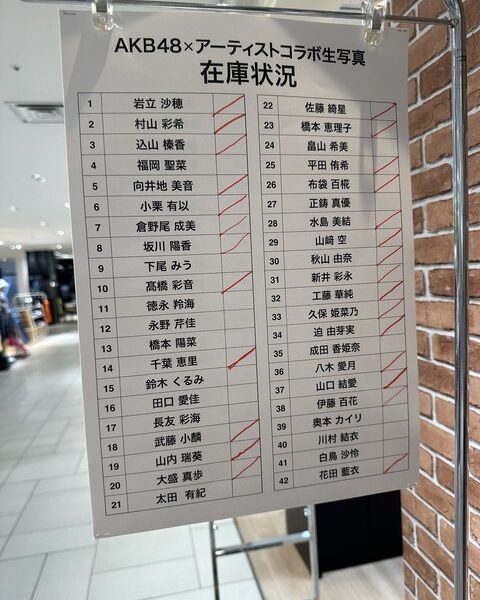 AKB48×アーティストコラボ生写真
在庫状況
1 岩立 沙穂
2 村山 彩希
3 込山 榛香
4 福岡 聖菜
5 向井地 美音
6 小栗 有以
7 倉野尾 成美
8 坂川 陽香
9 下尾 みう
10 髙橋 彩音
11 徳永 羚海
12 永野 芹佳
13 橋本 陽菜
14 千葉 恵里
15 鈴木 くるみ
16 田口 愛佳
17 長友 彩海
18 武藤 小麟
19 山内 瑞葵
20 大盛 真歩
21 太田 有紀
22 佐藤 綺星
23 橋本 恵理子
24 畠山 希美
25 平田 侑希
26 布袋 百椛
27 正鋳 真優
28 水島 美結
29 山﨑 空
30 秋山 由奈
31 新井 彩永
32 工藤 華純
33 久保 姫菜乃
34 迫 由芽実
35 成田 香姫奈
36 八木 愛月
37 山口 結愛
38 伊藤 百花
39 奥本 カイリ
40 川村 結衣
41 白鳥 沙怜
42 花田 藍衣